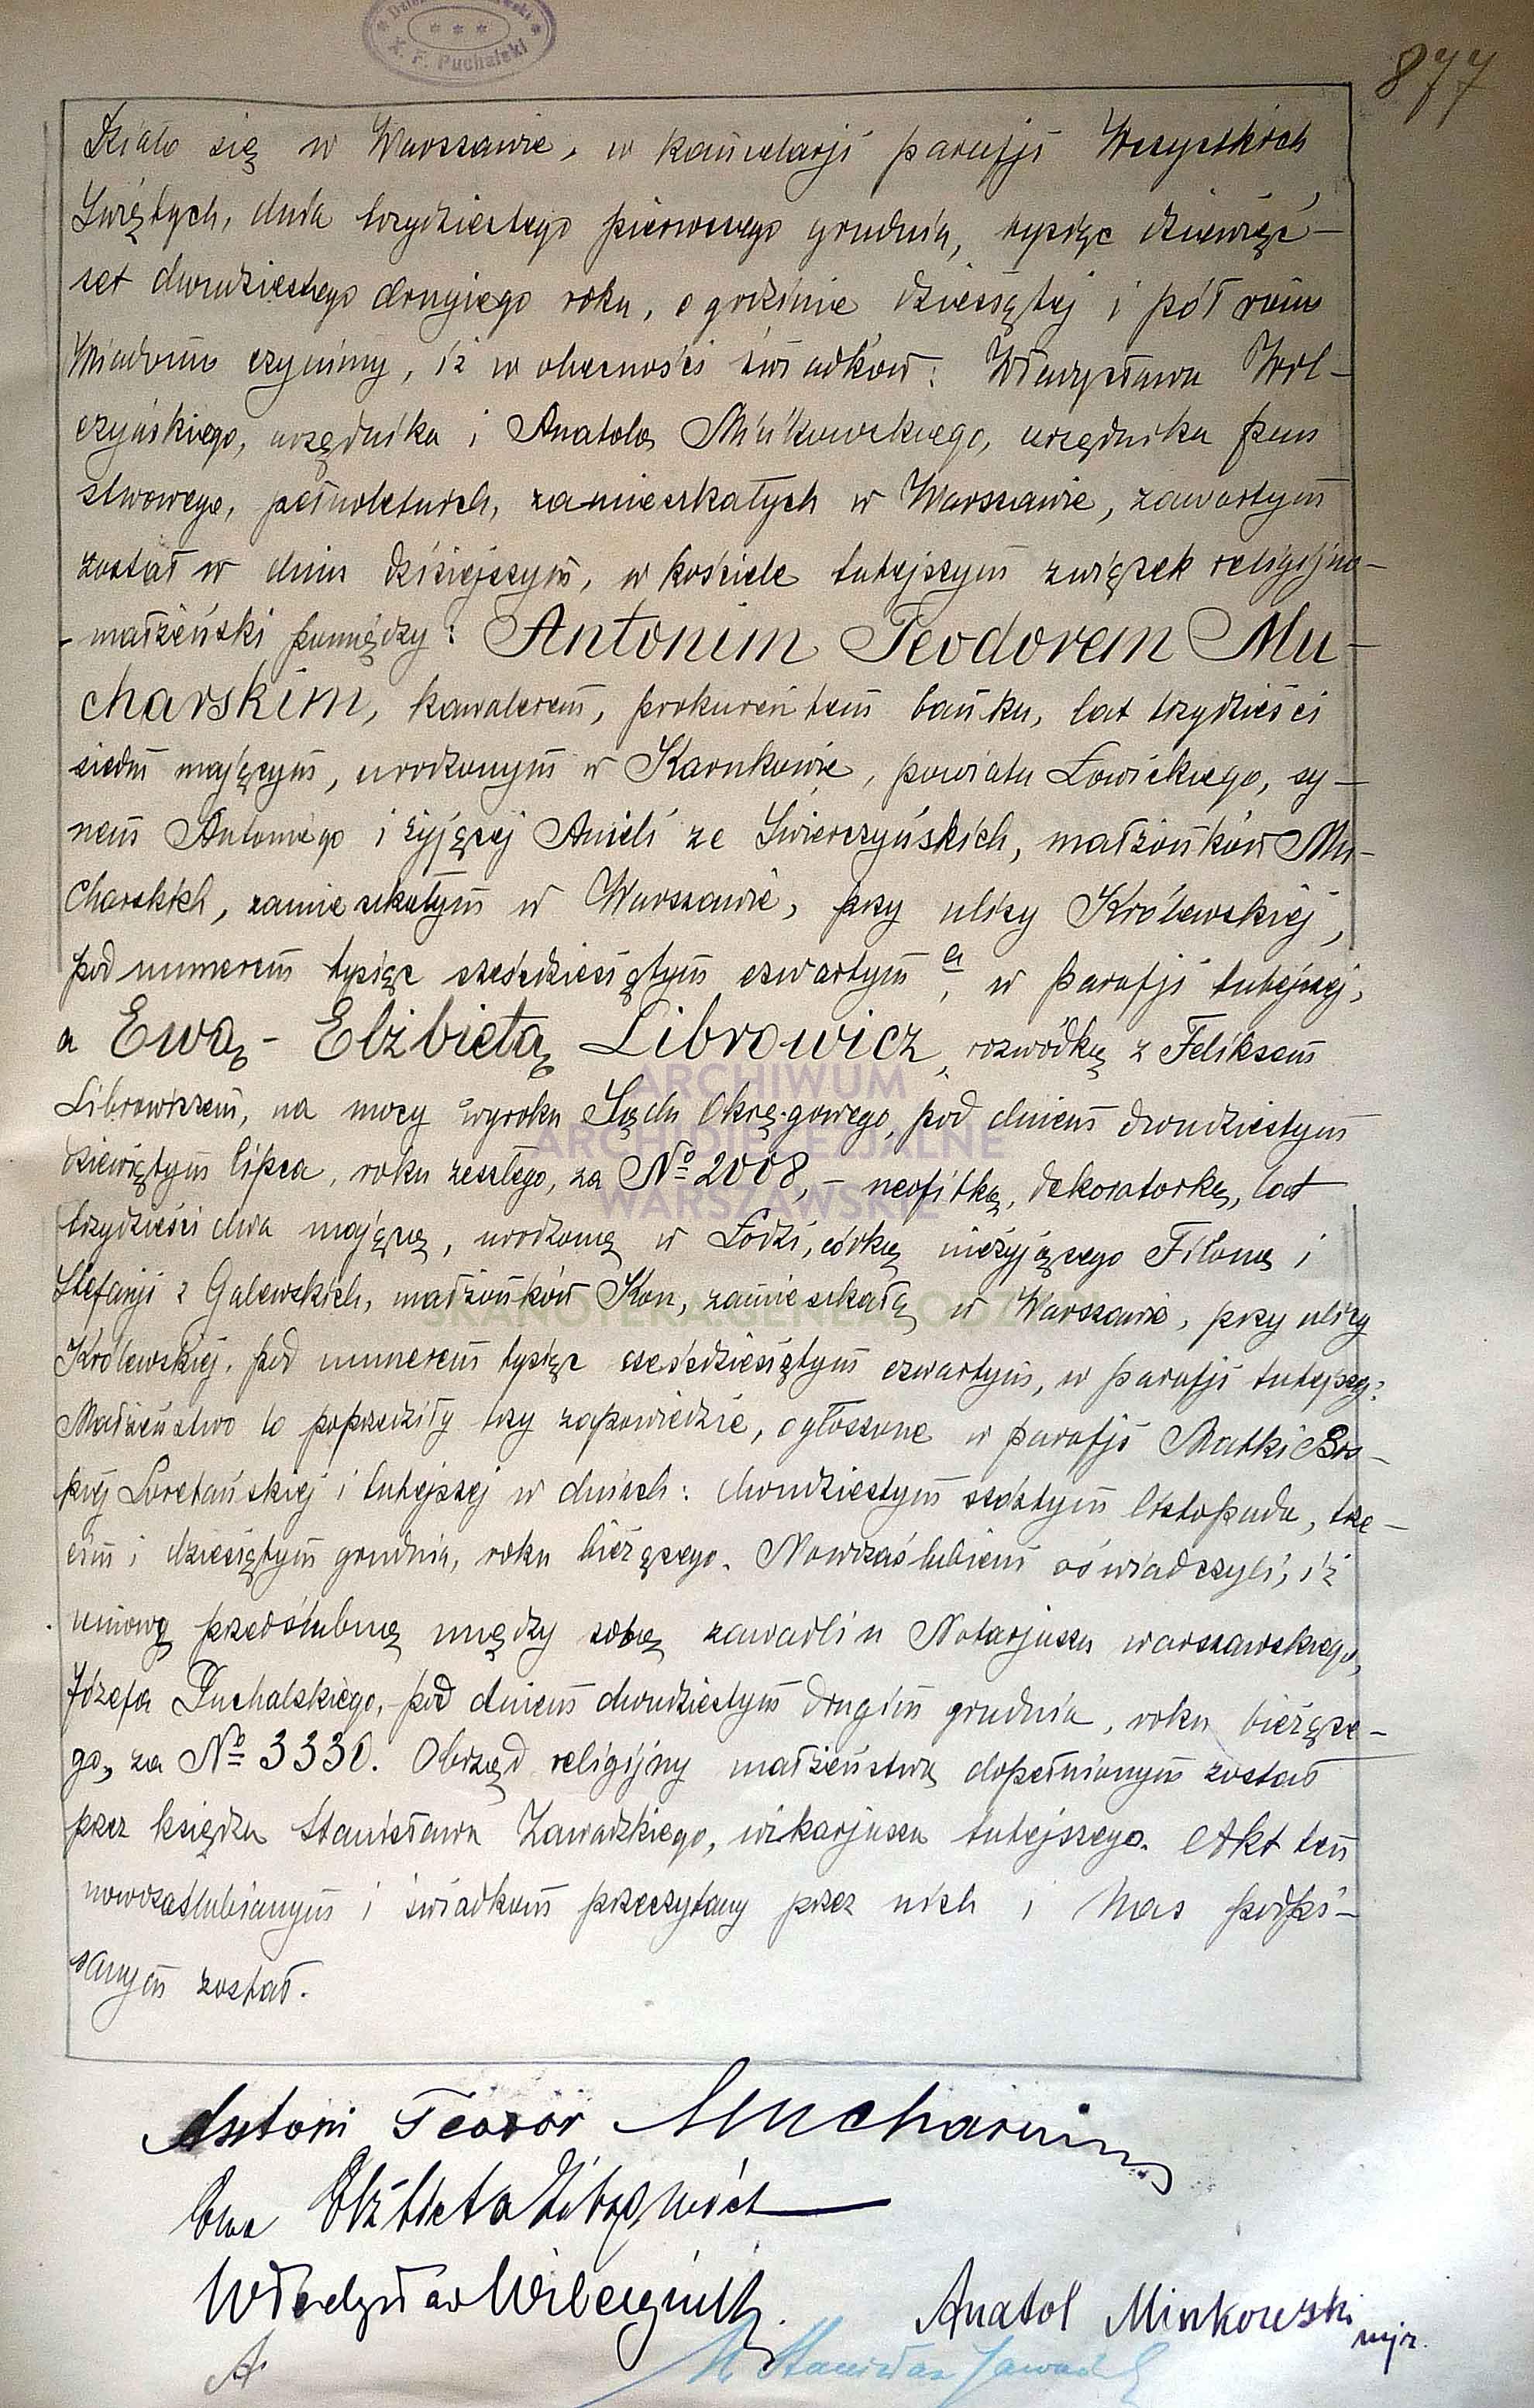 X. F. Puchalski
877
Działo się w Warszawie, w kancelarji parafji Wszystkich
Świętych, dnia trzydziestego pierwszego grudnia, tysiąc dziewięć-
set dwudziestego drugiego roku, o godzinie dziesiątej i pół rano
Wiadomo czynimy, iż w obecności świadków: Władysława Wil-
czyńskiego, urzędnika i Anatola Minkowskiego, urzędnika pań
stwowego, pełnoletnich, zamieszkałych w Warszawie, zawartym
został w dniu dzisiejszym, w kościele tutejszym związek religijno-
- małżeński pomiędzy: Antonim Teodorem Mu-
charskim, kawalerem, prokurentem banku, lat trzydzieści
siedm mającym, urodzonym w Karnkowie, powiatu Łowickiego, sy-
nem Antoniego i żyjącej Anieli ze Świerczyńskich, małżonków Mu-
charskich, zamieszkałym w Warszawie, przy ulicy Królewskiej,
pod numerem tysiąc sześćdziesiątym czwartym a, w parafji tutejszej,
a Ewą - Elżbietą Librowicz, rozwódką z Feliksem
Librowiczem, na mocy wyroku Sądu Okręgowego, pod dniem dwudziestym
dziewiątym lipca, roku zeszłego, za № 2008, - neofitką, dekoratorką, lat
trzydzieści dwa mającą, urodzoną w Łodzi, córką nieżyjącego Filona i
Stefanji z Galewskich, małżonków Kon, zamieszkałą w Warszawie, przy ulicy
Królewskiej, pod numerem tysiąc sześćdziesiątym czwartym, w parafji tutejszej.
Małżeństwo to poprzedziły trzy zapowiedzie, ogłoszone w parafji Matki Bos-
kiej Loretańskiej i tutejszej w dniach: dwudziestym szóstym listopada, trze-
cim i dziesiątym grudnia, roku bieżącego. Nowozaślubieni oświadczyli, iż
umowę przedślubną między sobą zawarli u Notarjusza warszawskiego,
Józefa Puchalskiego, pod dniem dwudziestym drugim grudnia, roku bieżące-
go, za № 3330. Obrząd religijny małżeństwa dopełnionym został
przez księdza Stanisława Zawadzkiego, wikarjusza tutejszego. Akt ten
nowozaślubionym i świadkom przeczytany przez nich i Nas podpi-
sanym został.
Antoni Teodor Mucharski
Ewa Elżbieta Librowicz
Władysław Wilczyński
Anatol Minkowski
mjr.
X Stanisław Zawadzki
ARCHIWUM
ARCHIDIECEZJALNE
WARSZAWSKIE